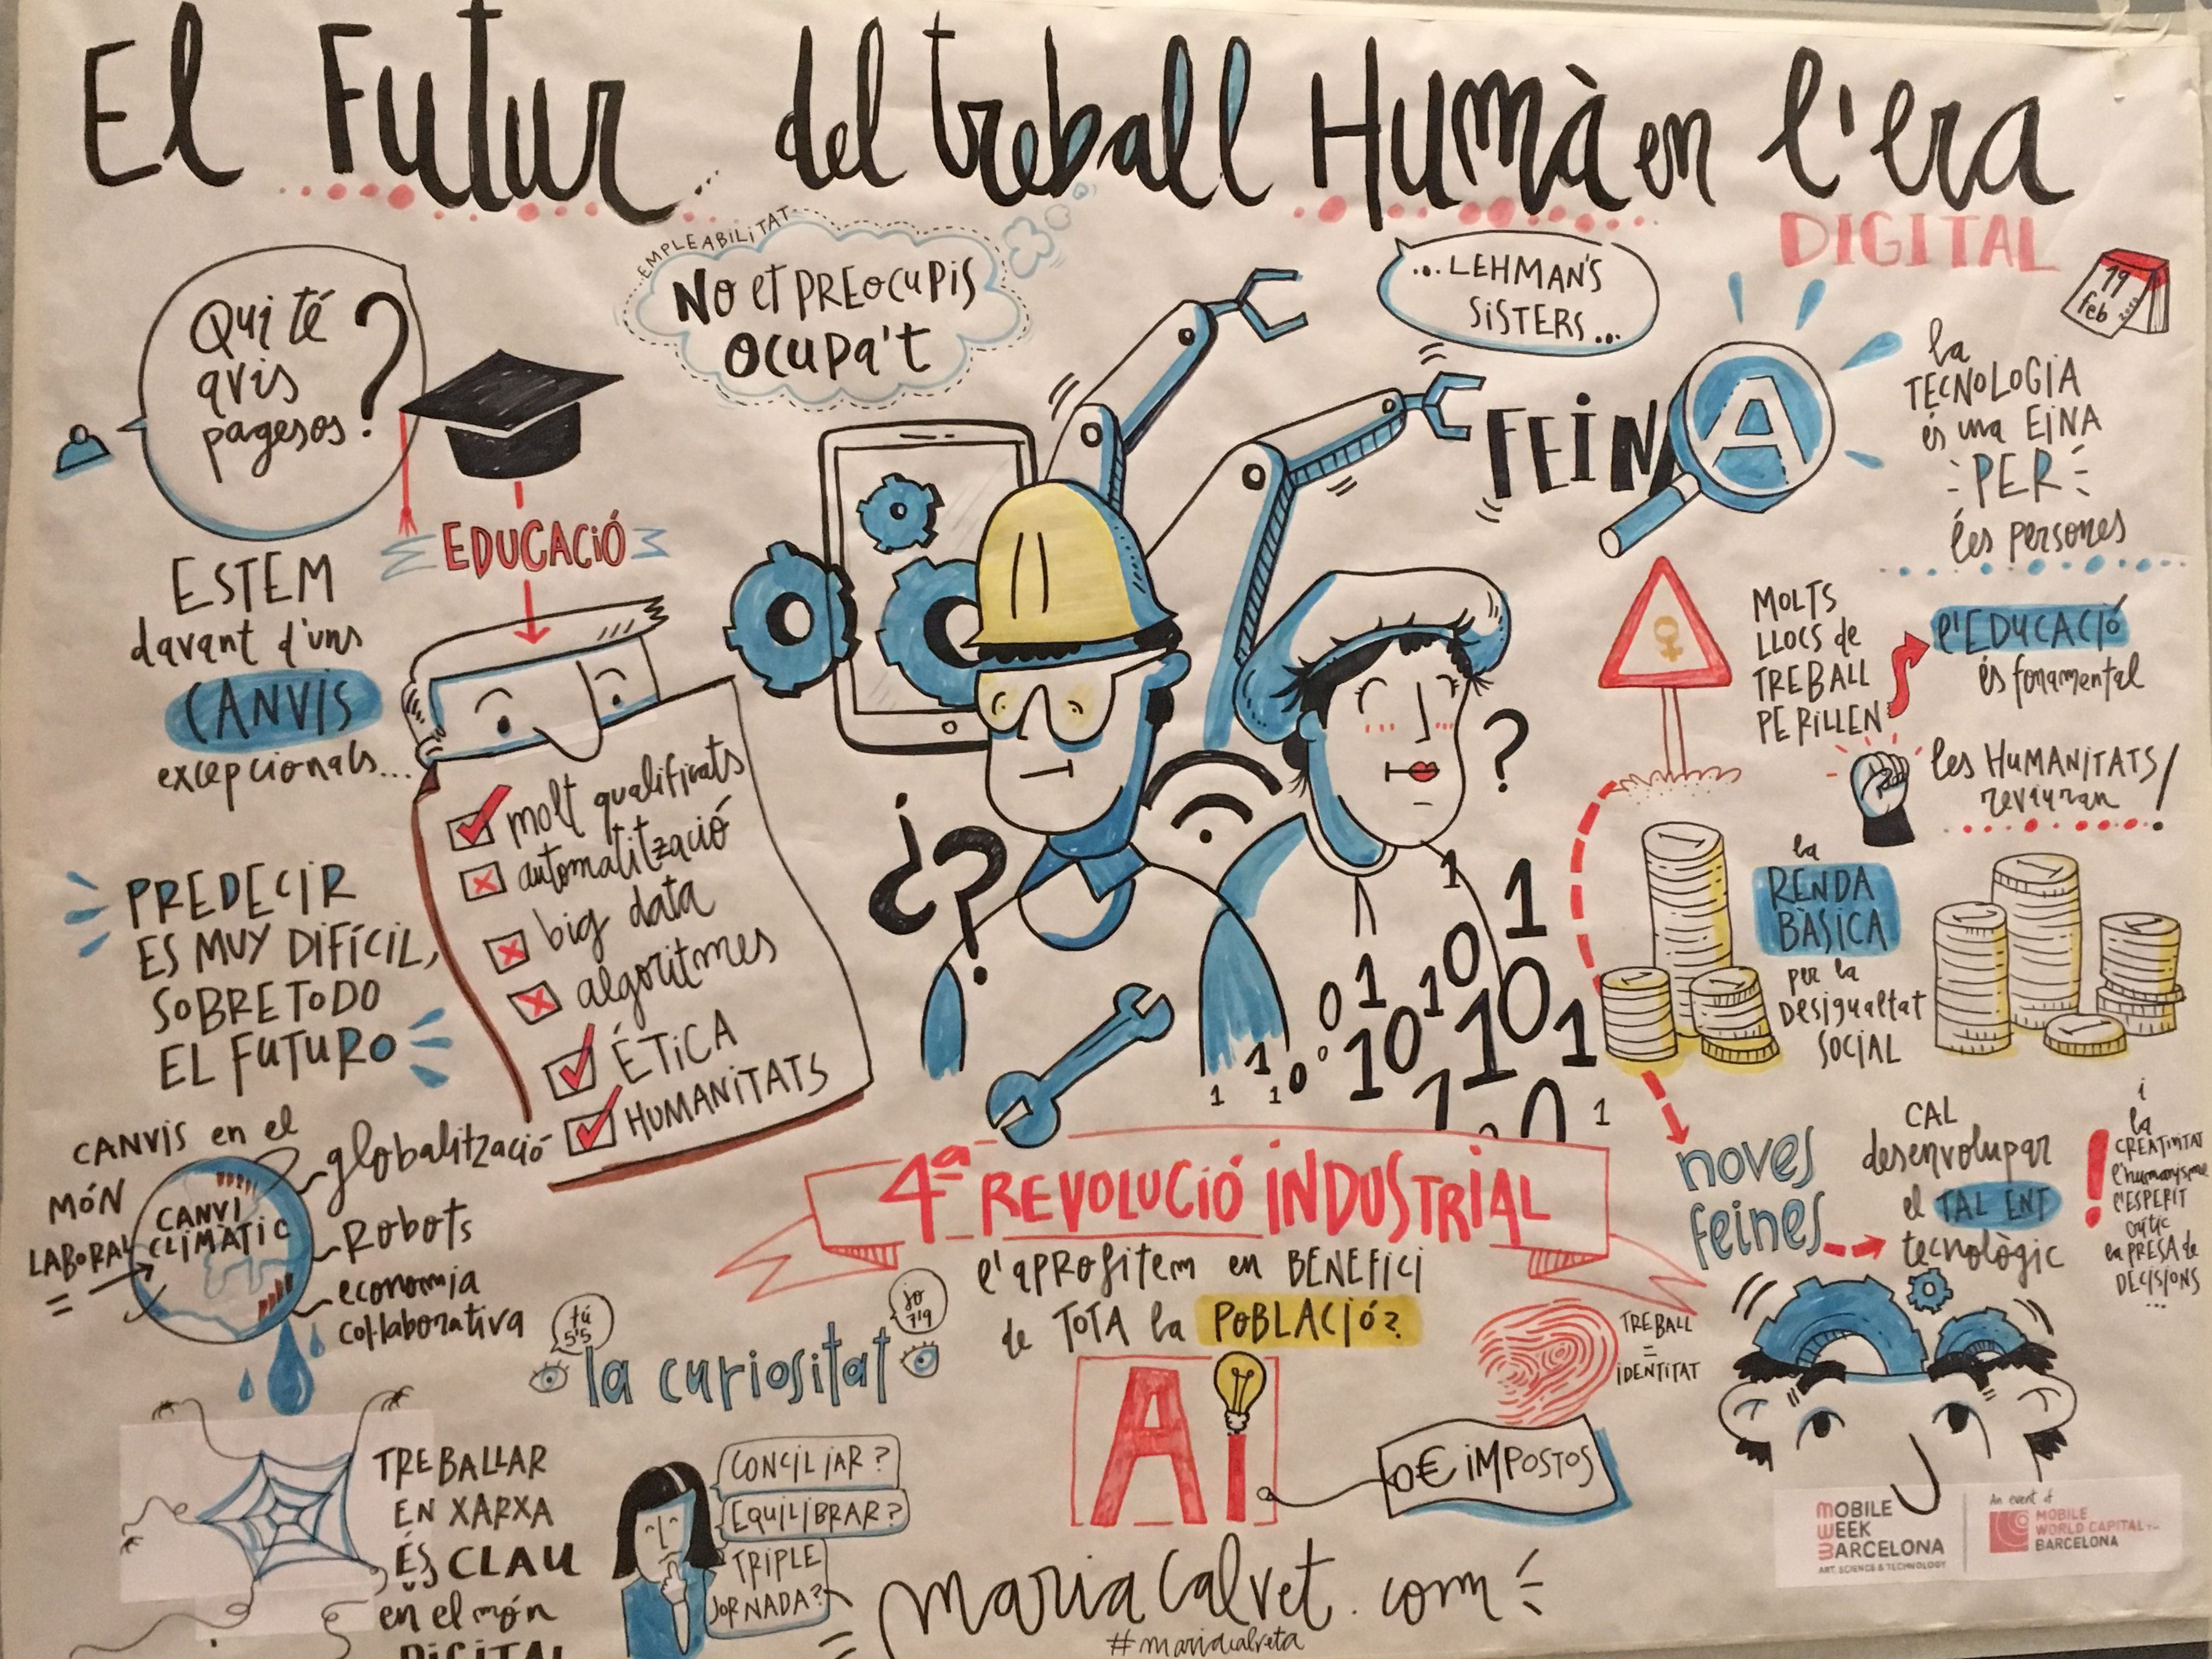 El Futur del treball Humà en l'era
DIGITAL
EMPLEABILITAT
NO et PREOCUPIS
OCUPA'T
...LEHMAN'S
SISTERS...
19
feb
Qui té
avis
pagesos?
EDUCACIÓ
FEINA
la
TECNOLOGIA
és una EINA
PER
les persones
ESTEM
davant d'uns
CANVIS
excepcionals...
molt qualificats
automatització
big data
algoritmes
ÉTICA
HUMANITATS
MOLTS
LLOCS de
TREBALL
PERILLEN
l'EDUCACIÓ
és fonamental
les HUMANITATS
reviuran !
PREDECIR
ES MUY DIFÍCIL,
SOBRETODO
EL FUTURO
¿?
?
la
RENDA
BÀSICA
per la
desigualtat
SOCIAL
CANVIS en el
MÓN
LABORAL
=
CANVI
CLIMÀTIC
globalització
Robots
economia
col·laborativa
4ª REVOLUCIÓ INDUSTRIAL
l'aprofitem en BENEFICI
de TOTA la POBLACIÓ?
noves
feines
CAL
desenvolupar
el TALENT
tecnològic
!
i
la
CREATIVITAT
l'humanisme
l'ESPERIT
crític
la PRESA de
DECISIONS
...
tú
5'5
jo
7'9
la curiositat
TREBALL
=
IDENTITAT
Ai
0€ IMPOSTOS
TREBALLAR
EN XARXA
ÉS CLAU
en el món
DIGITAL
CONCILIAR?
EQUILIBRAR?
TRIPLE
JORNADA?
mariacalvet.com
#mariacalveta
MOBILE
WEEK
BARCELONA
ART, SCIENCE & TECHNOLOGY
An event of
MOBILE
WORLD CAPITAL™
BARCELONA